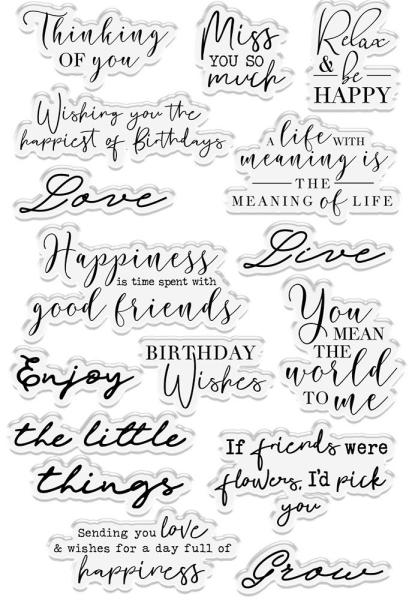 Thinking
OF you
Miss
YOU SO
much
Relax
& be
HAPPY
Wishing you the
happiest of Birthdays
A life WITH
meaning is
THE
MEANING of LIFE
Love
Live
Happiness
is time spent with
good friends
You
MEAN
THE
world
TO me
BIRTHDAY
Wishes
Enjoy
the little
things
If friends were
flowers, I'd pick
you
Sending you love
& wishes for a day full of
happiness
Grow